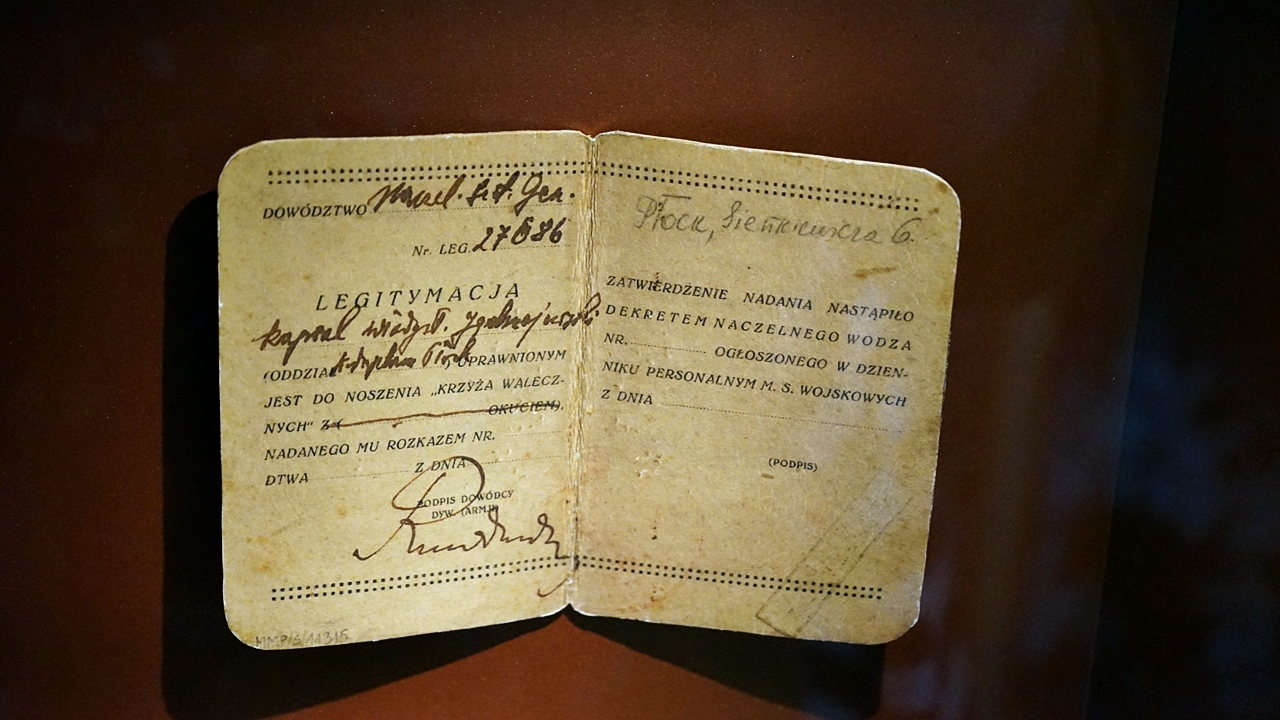 DOWÓDZTWO Gen.
Nr. LEG. 27
LEGITYMACJA
kapral
(ODDZIAŁ UPRAWNIONYM
JEST DO NOSZENIA „KRZYŻA WALECZ-
NYCH" Z ( OKUCIEM),
NADANEGO MU ROZKAZEM NR.
DTWA Z DNIA
PODPIS DOWÓDCY
DYW. (ARMJI)
MMP/S/11315
Płock, Sienkiewicza 6.
ZATWIERDZENIE NADANIA NASTĄPIŁO
DEKRETEM NACZELNEGO WODZA
NR. OGŁOSZONEGO W DZIEN-
NIKU PERSONALNYM M. S. WOJSKOWYCH
Z DNIA
(PODPIS)